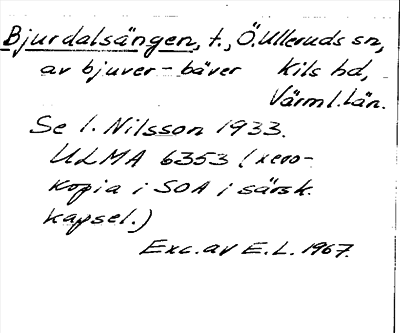 Bjurdalsängen, t., Ö. Ulleruds sn,
av bjuver - bäver Kils hd,
Värml. län.
Se I. Nilsson 1933.
ULMA 6353 (xero-
kopia i SOA i särsk.
kapsel.)
Exc. av E.L. 1967.